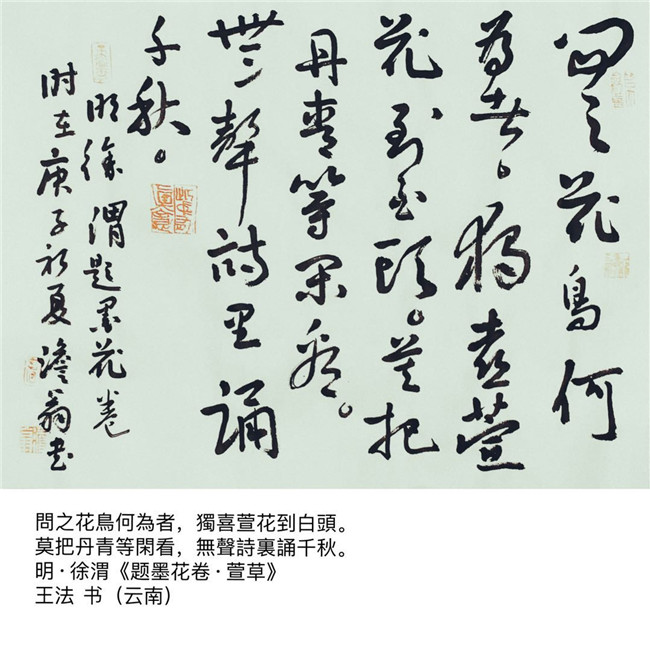 問之花鳥何
為者。獨喜萱
花到白頭。莫把
丹青等閑看。
無聲詩里誦
千秋。
明徐渭题墨花卷
时在庚子初夏澹翁书
問之花鳥何為者，獨喜萱花到白頭。
莫把丹青等閑看，無聲詩裏誦千秋。
明·徐渭《题墨花卷·萱草》
王法 书（云南）